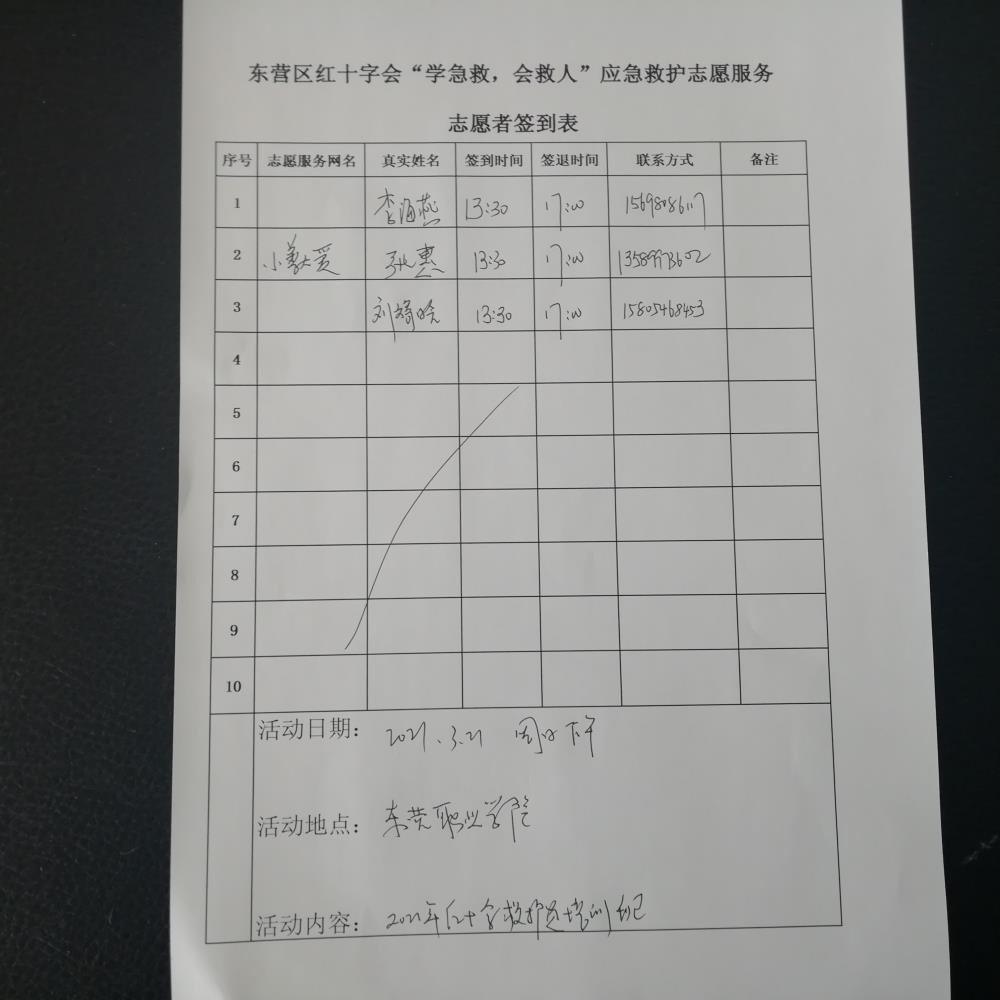 东营区红十字会“学急救，会救人”应急救护志愿服务
志愿者签到表
序号 志愿服务网名 真实姓名 签到时间 签退时间 联系方式 备注
1 李海燕 13:30 17:00 15698086117
2 小善大爱 张惠 13:30 17:00
3 刘 13:30 17:00 15805468453
4
5
6
7
8
9
10
活动日期： 2021.3.21 周日下午
活动地点： 东营职业学院
活动内容： 2021年红十字救护员培训